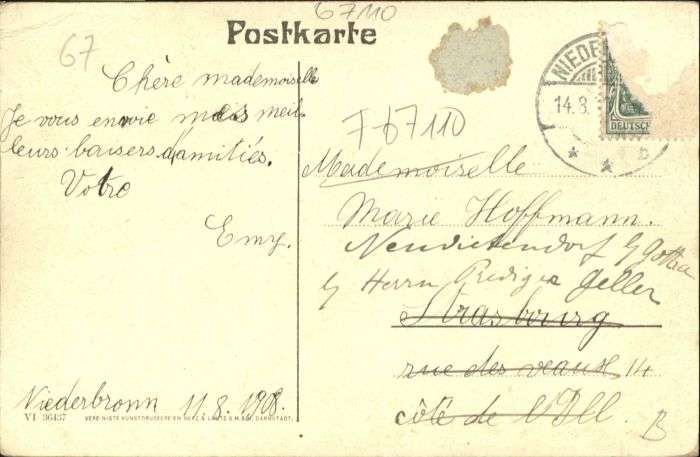 67110
Postkarte
67
Chère mademoiselle
Je vous envoie mes meil
leurs baisers d'amitiés.
Votre
Emy.
Niederbronn 11.8.1908.
VI 36437
VEREINIGTE KUNSTDRUCKEREIEN METZ & LAUTZ G.M.B.H. DARMSTADT.
NIEDE
14.8.
DEUTSCH
* * b
F 67110
Mademoiselle
Marie Hoffmann.
Neudietendorf b/ Gotha
b/ Herrn Prediger Geller
Strasbourg
rue des veaux 14
côté de
B